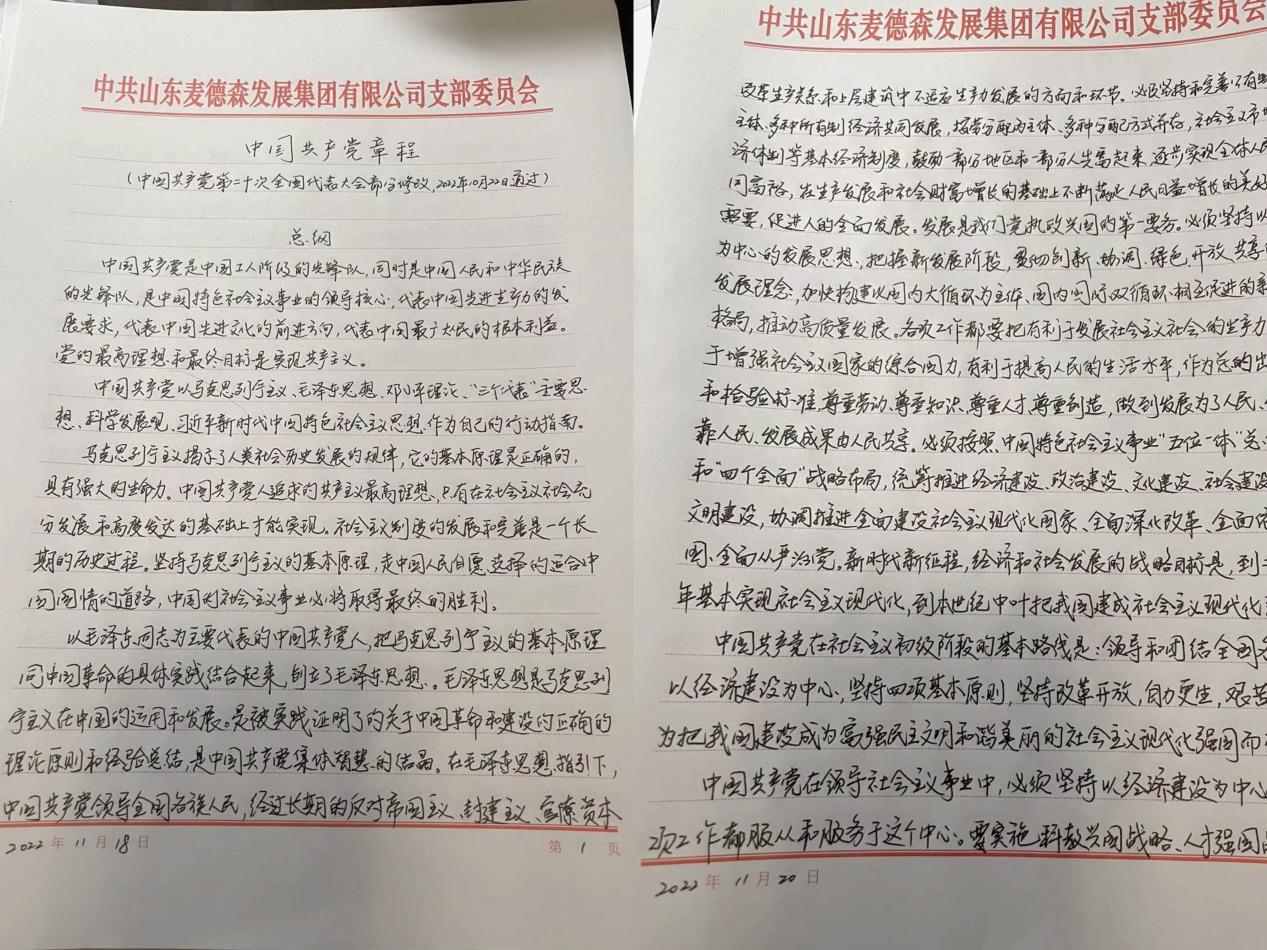 中共山东麦德森发展集团有限公司支部委员会
中国共产党章程
(中国共产党第二十次全国代表大会部分修改,2022年10月22日通过)
总纲
中国共产党是中国工人阶级的先锋队,同时是中国人民和中华民族
的先锋队,是中国特色社会主义事业的领导核心,代表中国先进生产力的发
展要求,代表中国先进文化的前进方向,代表中国最广大人民的根本利益。
党的最高理想和最终目标是实现共产主义。
中国共产党以马克思列宁主义、毛泽东思想、邓小平理论、“三个代表”主要思
想、科学发展观、习近平新时代中国特色社会主义思想作为自己的行动指南。
马克思列宁主义揭示了人类社会历史发展的规律,它的基本原理是正确的,
具有强大的生命力。中国共产党人追求的共产主义最高理想,只有在社会主义社会充
分发展和高度发达的基础上才能实现。社会主义制度的发展和完善是一个长
期的历史过程。坚持马克思列宁主义的基本原理,走中国人民自愿选择的适合中
国国情的道路,中国的社会主义事业必将取得最终的胜利。
以毛泽东同志为主要代表的中国共产党人,把马克思列宁主义的基本原理
同中国革命的具体实践结合起来,创立了毛泽东思想。毛泽东思想是马克思列
宁主义在中国的运用和发展。是被实践证明了的关于中国革命和建设的正确的
理论原则和经验总结,是中国共产党集体智慧的结晶。在毛泽东思想指引下,
中国共产党领导全国各族人民,经过长期的反对帝国主义、封建主义、官僚资本
2022年11月18日 第1页
中共山东麦德森发展集团有限公司支部委员会
改革生产关系和上层建筑中不适应生产力发展的方向和环节。必须坚持和完善公有制
主体、多种所有制经济共同发展,按劳分配为主体、多种分配方式并存,社会主义市场
济体制等基本经济制度,鼓励一部分地区和一部分人先富起来,逐步实现全体人民
同富裕,在生产发展和社会财富增长的基础上不断满足人民日益增长的美好
需要,促进人的全面发展。发展是我们党执政兴国的第一要务。必须坚持以
为中心的发展思想,把握新发展阶段,贯彻创新、协调、绿色、开放、共享
发展理念,加快构建以国内大循环为主体、国内国际双循环相互促进的新
格局,推动高质量发展。各项工作都要把有利于发展社会主义社会的生产力
于增强社会主义国家的综合国力,有利于提高人民的生活水平,作为总的出
和检验标准,尊重劳动、尊重知识、尊重人才、尊重创造,做到发展为了人民、
靠人民、发展成果由人民共享。必须按照中国特色社会主义事业“五位一体”总
和“四个全面”战略布局,统筹推进经济建设、政治建设、文化建设、社会建设
文明建设,协调推进全面建设社会主义现代化国家、全面深化改革、全面依
国、全面从严治党。新时代新征程,经济和社会发展的战略目标是,到二
年基本实现社会主义现代化,到本世纪中叶把我国建成社会主义现代化
中国共产党在社会主义初级阶段的基本路线是:领导和团结全国各
以经济建设为中心,坚持四项基本原则,坚持改革开放,自力更生,艰苦
为把我国建设成为富强民主文明和谐美丽的社会主义现代化强国而
中国共产党在领导社会主义事业中,必须坚持以经济建设为中心
项工作都服从和服务于这个中心。要实施科教兴国战略、人才强国
2022年11月20日